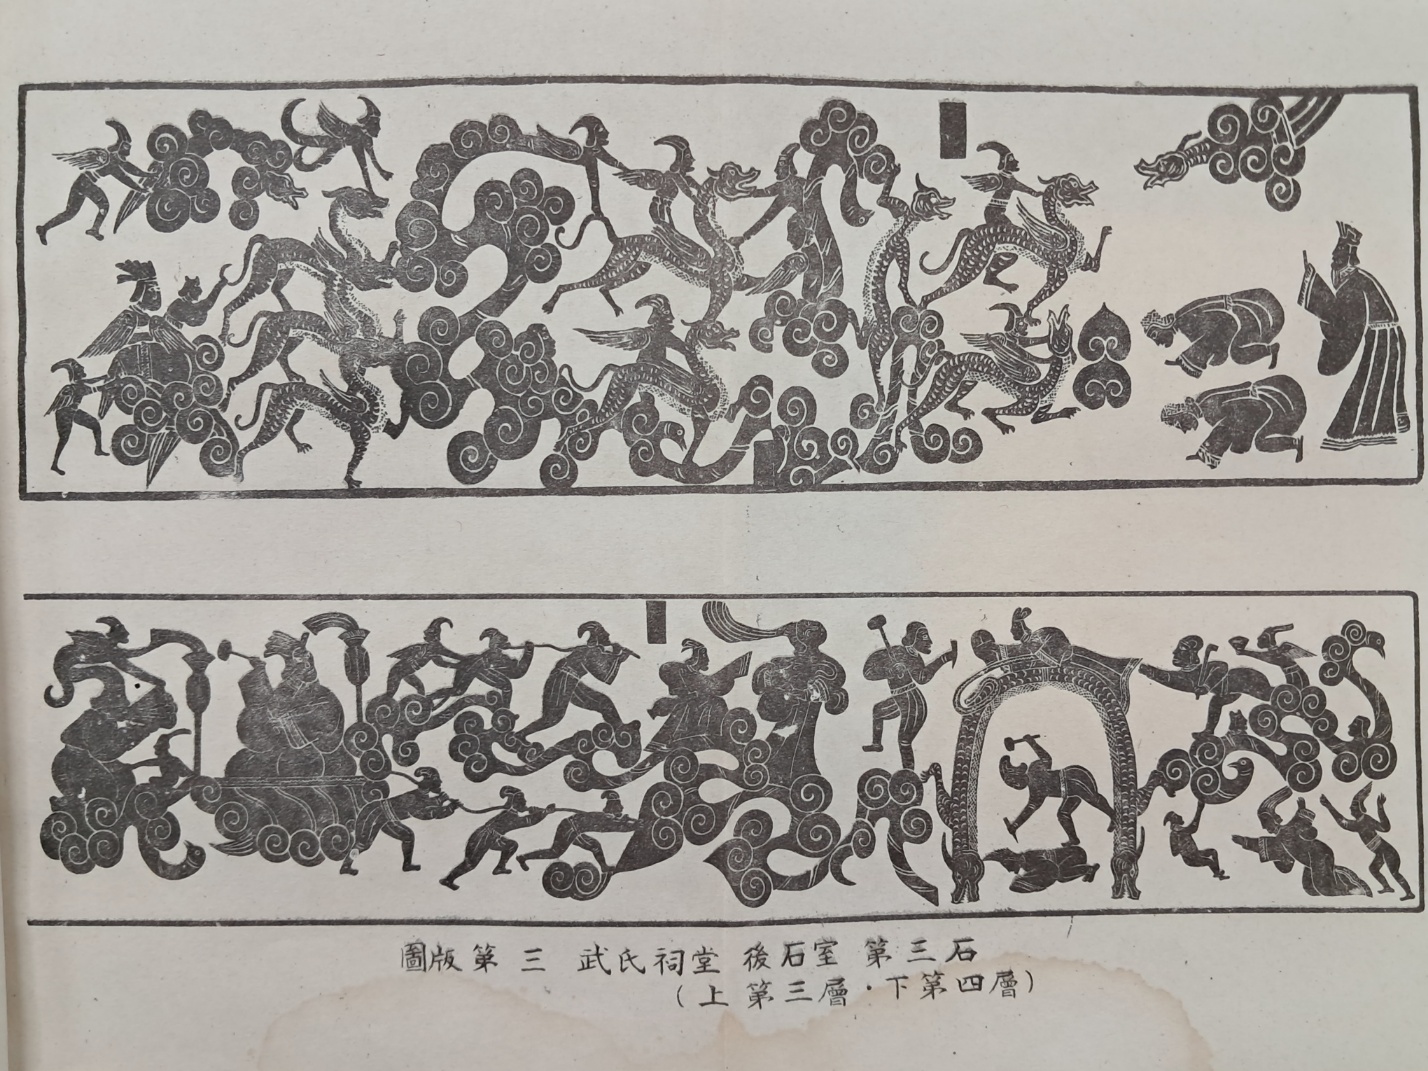 圖版第三 武氏祠堂 後石室 第三石
（上第三層・下第四層）